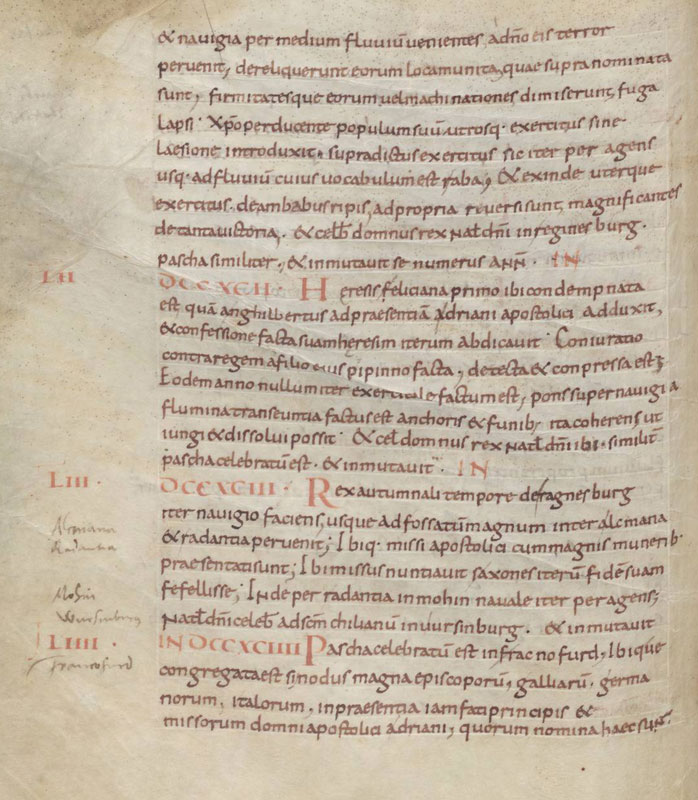 & navigia per medium fluviū venientes adn̄o eis terror
pervenit, dereliquerunt eorum loca munita, quae supra nominata
sunt, firmitatesque eorum vel machinationes dimiserunt, fuga
lapsi· Xp̄o perducente populum suū, utrosq· exercitus sine
laesione introduxit· supradictus exercitus sic iter per agens
usq· ad fluviū cuius vocabulum est raba; & exinde uterque
exercitus· de ambabus ripis, ad propria reversi sunt, magnificantes
de tanta victoria, & celeb̄ domnus rex Nat̄l dn̄i in reginesburg·
pascha similiter, & inmutavit se numerus ANN̄· IN
LII DCCXCII· Heresis feliciana primo ibi condempnata
est, quā anghilbertus ad praesentiā adriani apostolici adduxit,
& confessione facta suam heresim iterum abdicavit· Coniuratio
contra regem a filio eius pipinno facta, detecta & conpressa est;
Eodem anno nullum iter exercitale factum est, pons super navigia
flumina transeuntia factus est anchoris & funib; ita coherens, ut
iungi & dissolvi possit· & cel̄ domnus rex Nat̄l dn̄i ibi· simili&
pascha celebratū est· & inmutavit· IN
LIII· DCCXCIII· Rex autumnali tempore de ragnesburg
iter navigio faciens, usque ad fossatū magnum inter alcmana
& radantia pervenit; Ibiq· missi apostolici cum magnis munerib·
praesentati sunt; Ibi missus nuntiavit saxones iterū fidē suam
fefellisse; INde per radantia in mohin navale iter peragens;
Nat̄l dn̄i celeb̄ ad sc̄m chilianū in vursinburg· & inmutavit
Alcmana
Radantia
Mohin
Wursinburg
LIIII IN DCCXCIIII Pascha celebratū est in fracnofurd, Ibique
Francofurd
congregata est sinodus magna episcoporū, galliarū, germa
norum, italorum, in praesentia iam fati principis &
missorum domni apostolici adriani, quorum nomina haec sunt·